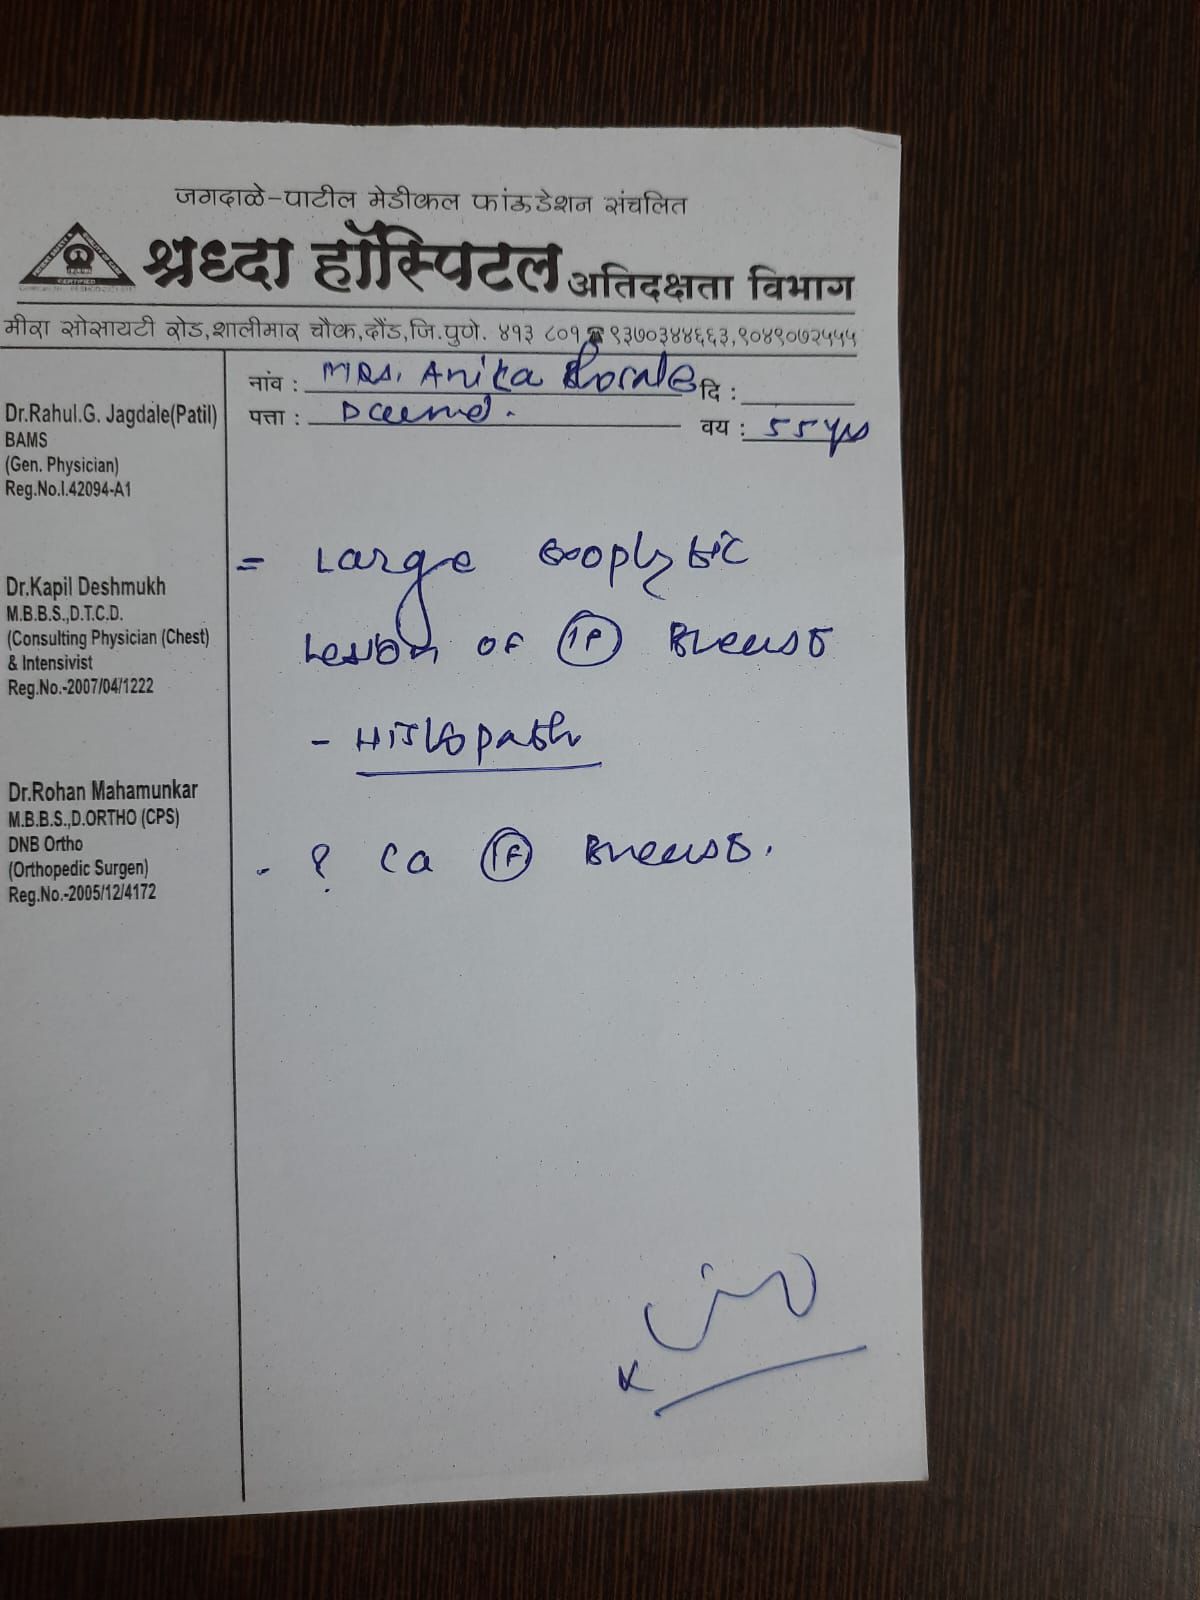 जगदाळे-पाटील मेडीकल फांऊडेशन संचलित
श्रध्दा हॉस्पिटल अतिदक्षता विभाग
CERTIFIED
मीरा सोसायटी रोड,शालीमार चौक,दौंड,जि.पुणे. ४१३ ८०१ ☎ ९३७०३४४६६३,९०४९०७२५५५
नांव : MRS. Anita
दि :
पत्ता : Daund.
वय : 55 yrs
Dr.Rahul.G. Jagdale(Patil)
BAMS
(Gen. Physician)
Reg.No.I.42094-A1
Dr.Kapil Deshmukh
M.B.B.S.,D.T.C.D.
(Consulting Physician (Chest)
& Intensivist
Reg.No.-2007/04/1222
Dr.Rohan Mahamunkar
M.B.B.S.,D.ORTHO (CPS)
DNB Ortho
(Orthopedic Surgen)
Reg.No.-2005/12/4172
= Large exophytic
Lesion of Breast
- Histopath
- ? Ca Breast.